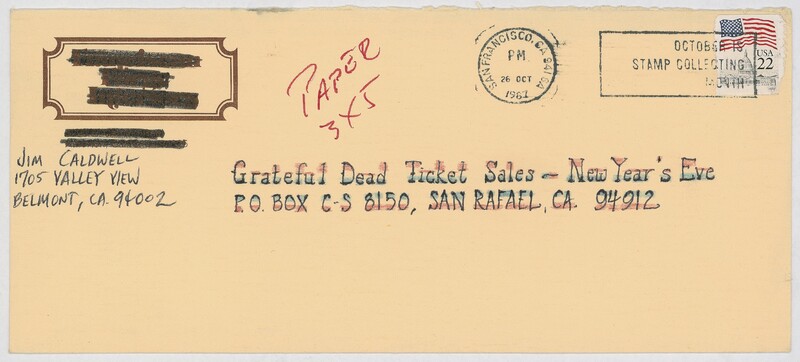 PAPER
3X5
SAN FRANCISCO, CA 941
PM
26 OCT
1987
OCTOBER IS
STAMP COLLECTING
MONTH
USA
22
JIM CALDWELL
1705 VALLEY VIEW
BELMONT, CA. 94002
Grateful Dead Ticket Sales – New Year's Eve
P.O. BOX C-S 8150, SAN RAFAEL, CA. 94912